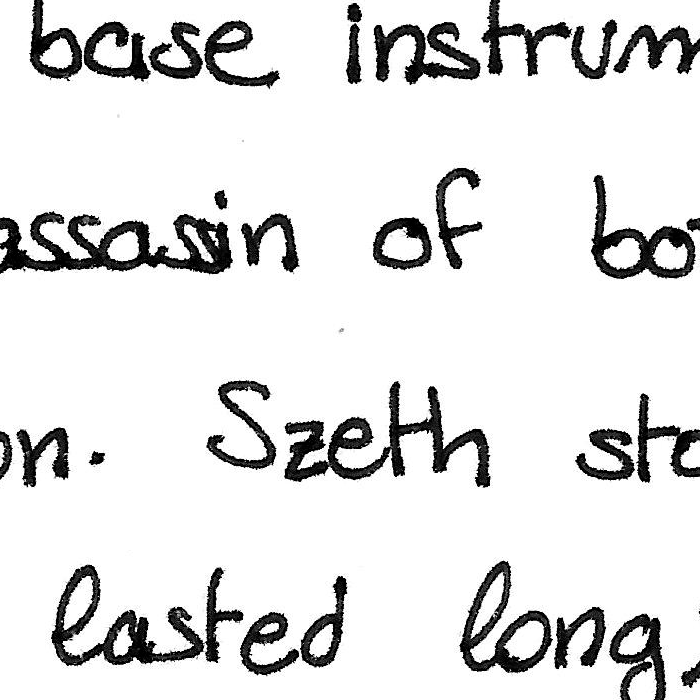 base instrum
assassin of bo
on. Szeth sto
lasted long,